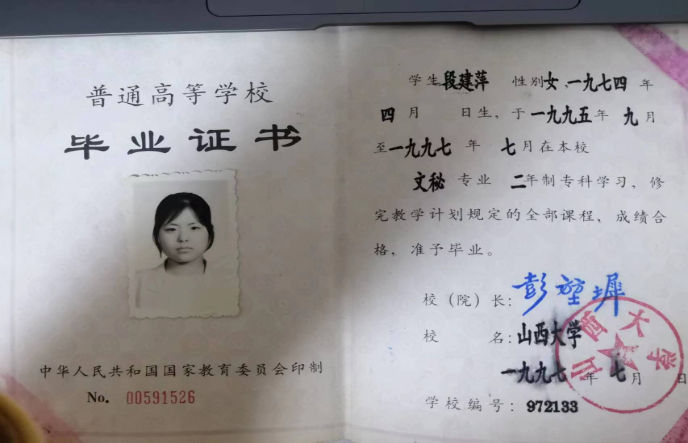 普通高等学校
毕业证书
中华人民共和国国家教育委员会印制
No. 00591526
学生段建萍 性别女,一九七四年
四月 日生,于一九九五年九月
至一九九七年七月在本校
文秘专业 二年制专科学习,修
完教学计划规定的全部课程,成绩合
格,准予毕业。
校(院)长:彭堃墀
校 名:山西大学
一九九七年七月 日
学校编号:972133
山西大学